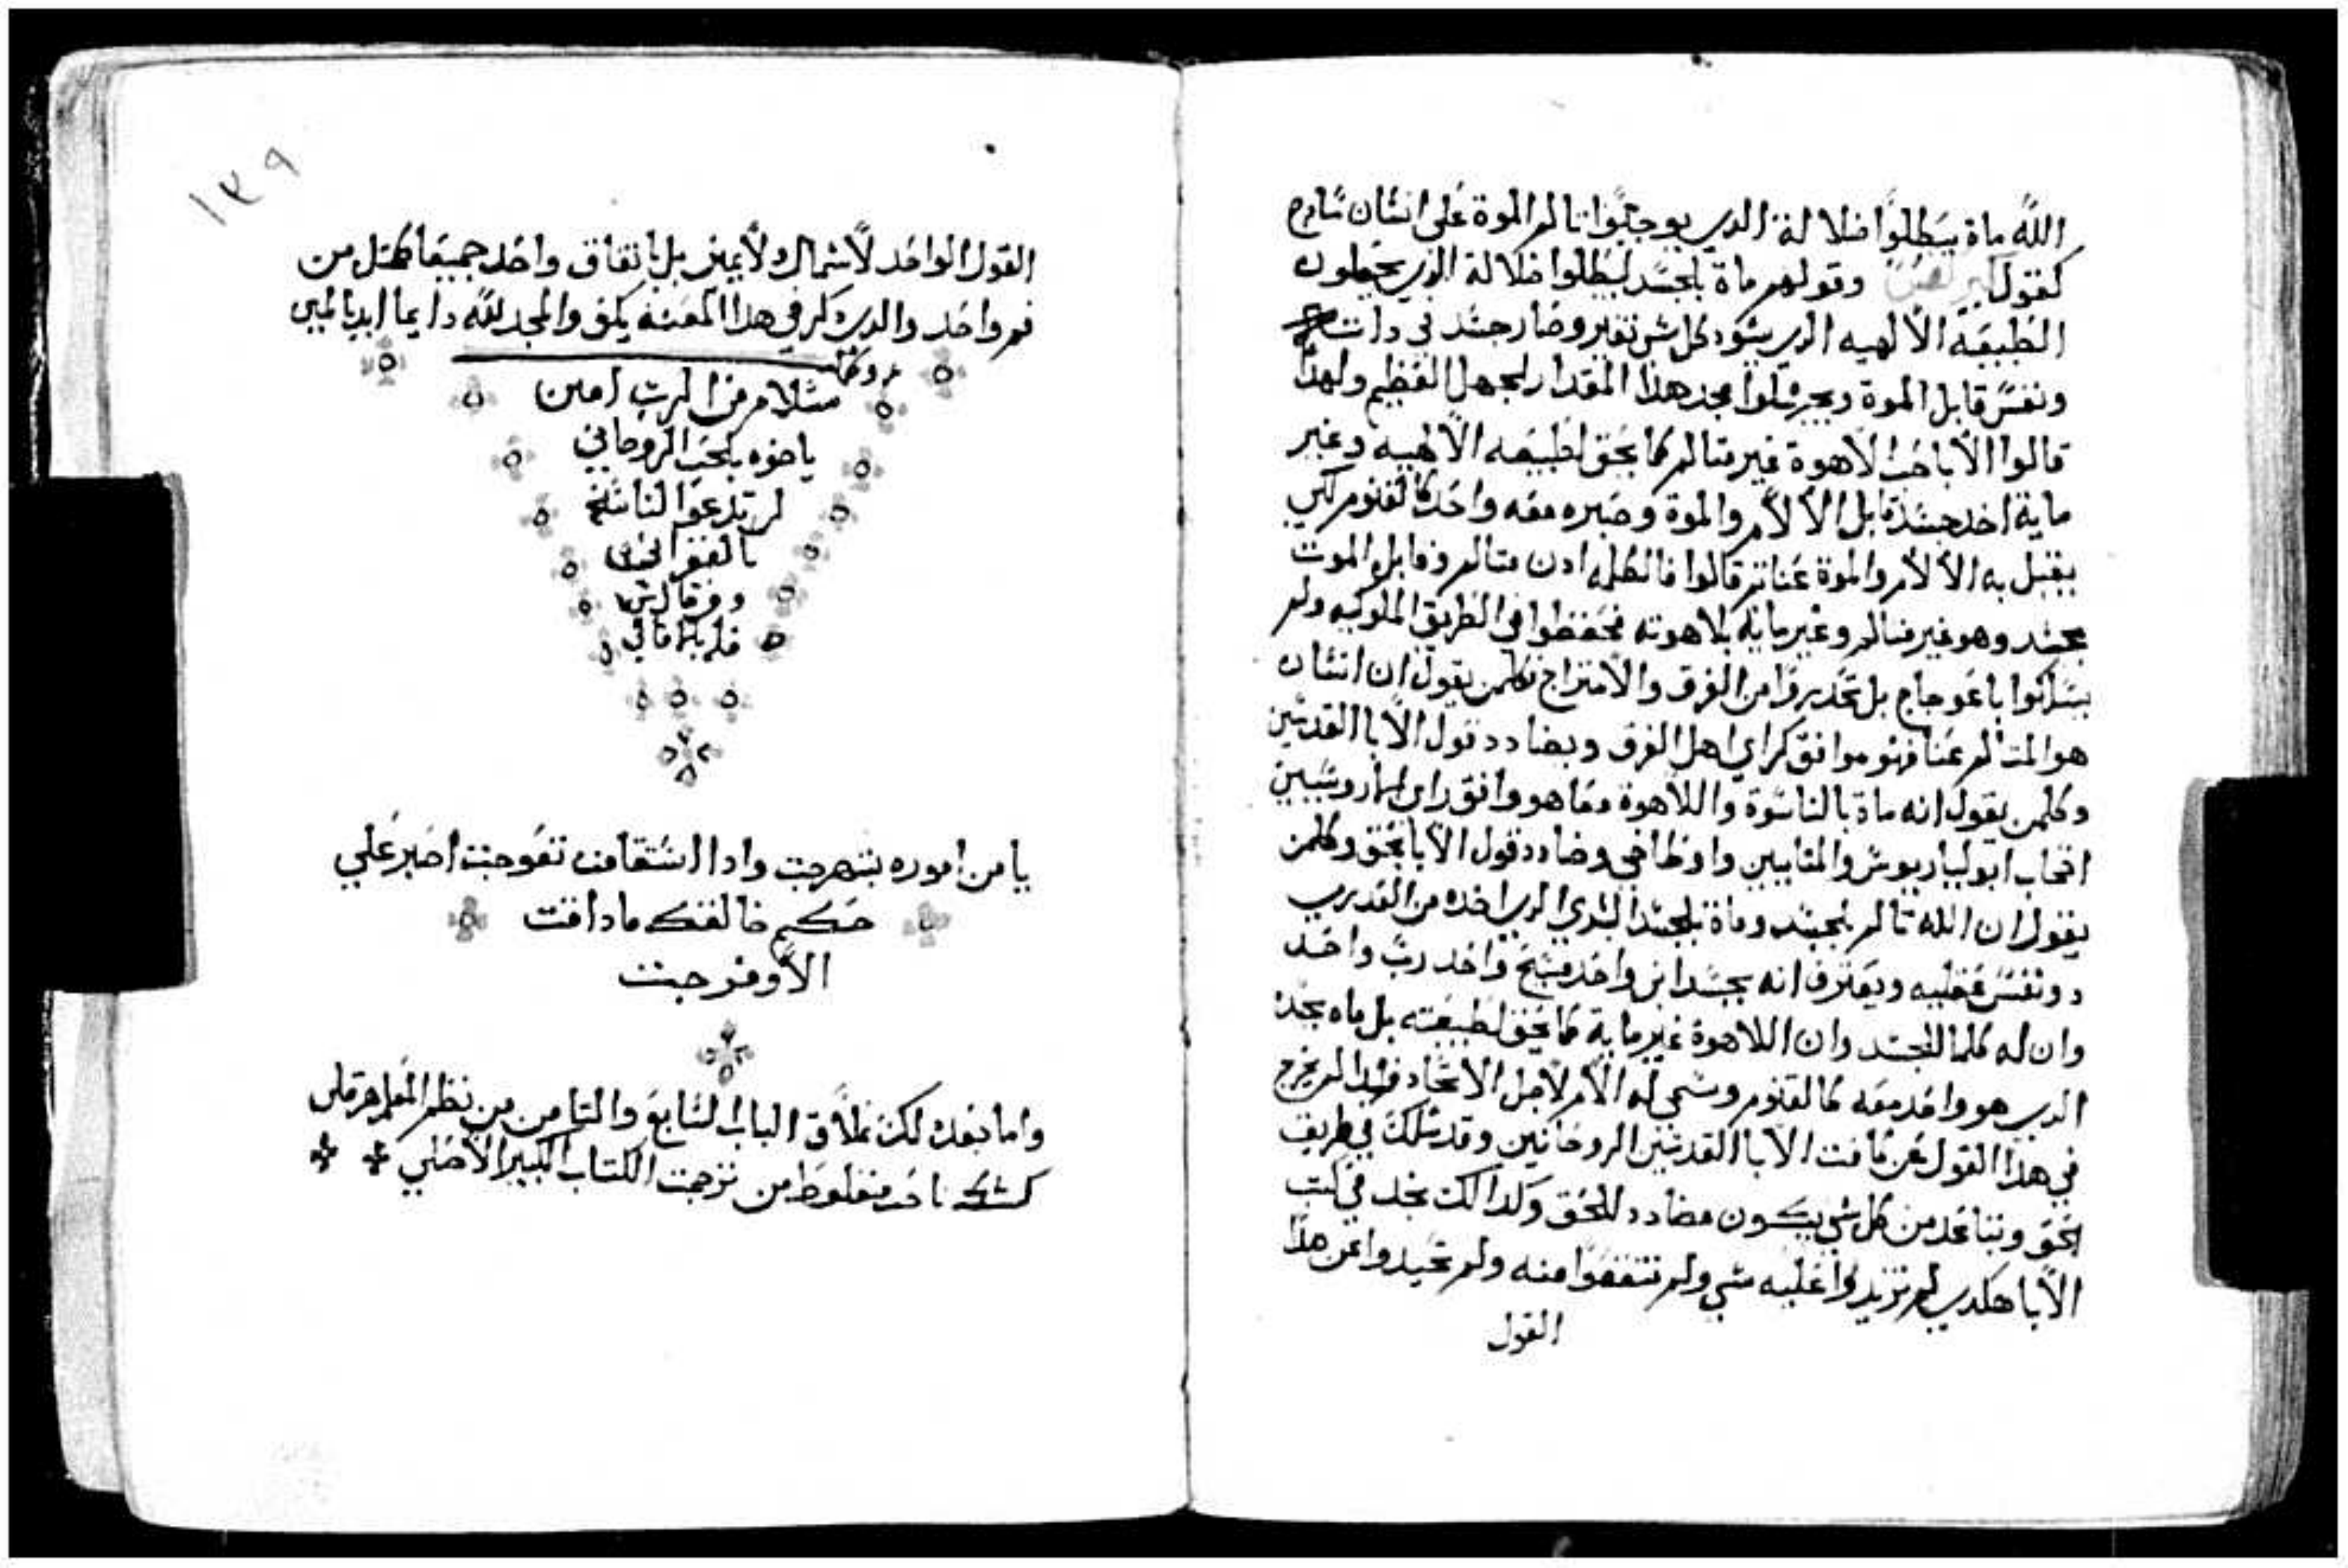 الله ماة يبطلوا ضلالة الدي يوجبوا تالم الموة على انسان سادج
كقول وقولهم ماة بلجسد ليبطلوا ضلالة الدي يجعلون
الطبيعة الالهيه الدي بتوكد كل شي تغير وصار جسد في دات
ونفس قابل الموة هذا المقدار لجهل العظيم ولهدا
قالوا الابا حب الاهوة غير متالم كما يحق لطبيعه الالهيه وغير
ماية اخد جسد قابل الالام والموة وصيره معه واحد كالقنوم لكي
يقبل به الالام والموة عنا تم قالوا فالكلمه ادن متالم وقابل الموت
بجسد وهو غير متالم وغير مايه بلاهوته فحفظوا في الطريق الملوكيه ولم
يسلكوا باعوجاج بل تحديرا من الفرق والامتزاج فكلمن يقول ان انسان
هو المتالم عنا فهو موافق كراي اهل الفرق ويضادد قول الابا القديسين
وكلمن يقول انه ماة بالناسوة واللاهوة معا هو وافق راي
اصحاب ابوليناريوس والمنانيين واوطاخي وضادد قول الابا بحق وكلمن
يقول ان الله تالم بلجسد وماة بلجسد البشري الدي اخده من العدري
دو نفس عقليه ويعترف انه بجسد ابن واحد مسيح واحد رب واحد
وان له كلما للجسد وان اللاهوة غير ماية كما يحق لطبيعته بل ماه بجسد
الدي هو واحد معه كالقنوم وسمي له الالام لاجل الاتحاد فهدا لم يخرج
في هدا القول عن كافت الابا القديسين الروحانيين وقد سلك في طريق
الحق وتباعد من كل شي يكون مضادد للحق وكدالك نجد في كتب
الابا هكدي لم تزيدوا عليه شي ولم تنقصوا منه ولم تحيدوا عن هدا
القول
١٣٩
القول الواحد لاشمال ولايمين بل باتفاق واحد جميعا كمتل من
فم واحد والدي دكر في هدا المعنه يكفي والمجد لله دايما ابديا امين
سلام من الرب امين
ياخوه بلحب الروحاني
لم تدعوا الناسخ
بالغفران
وفرقا
يا من اموره بتهرجت وادا استقامت تعوجت اصبر علي
حكم خالقك ما داقت
الا وفرجت
واما بعده لكن نملاق الباب السابع والتامن من نظم المعلم هرقلي
ناخد منفلوط من ترجمت الكتاب الكبير الاصلي